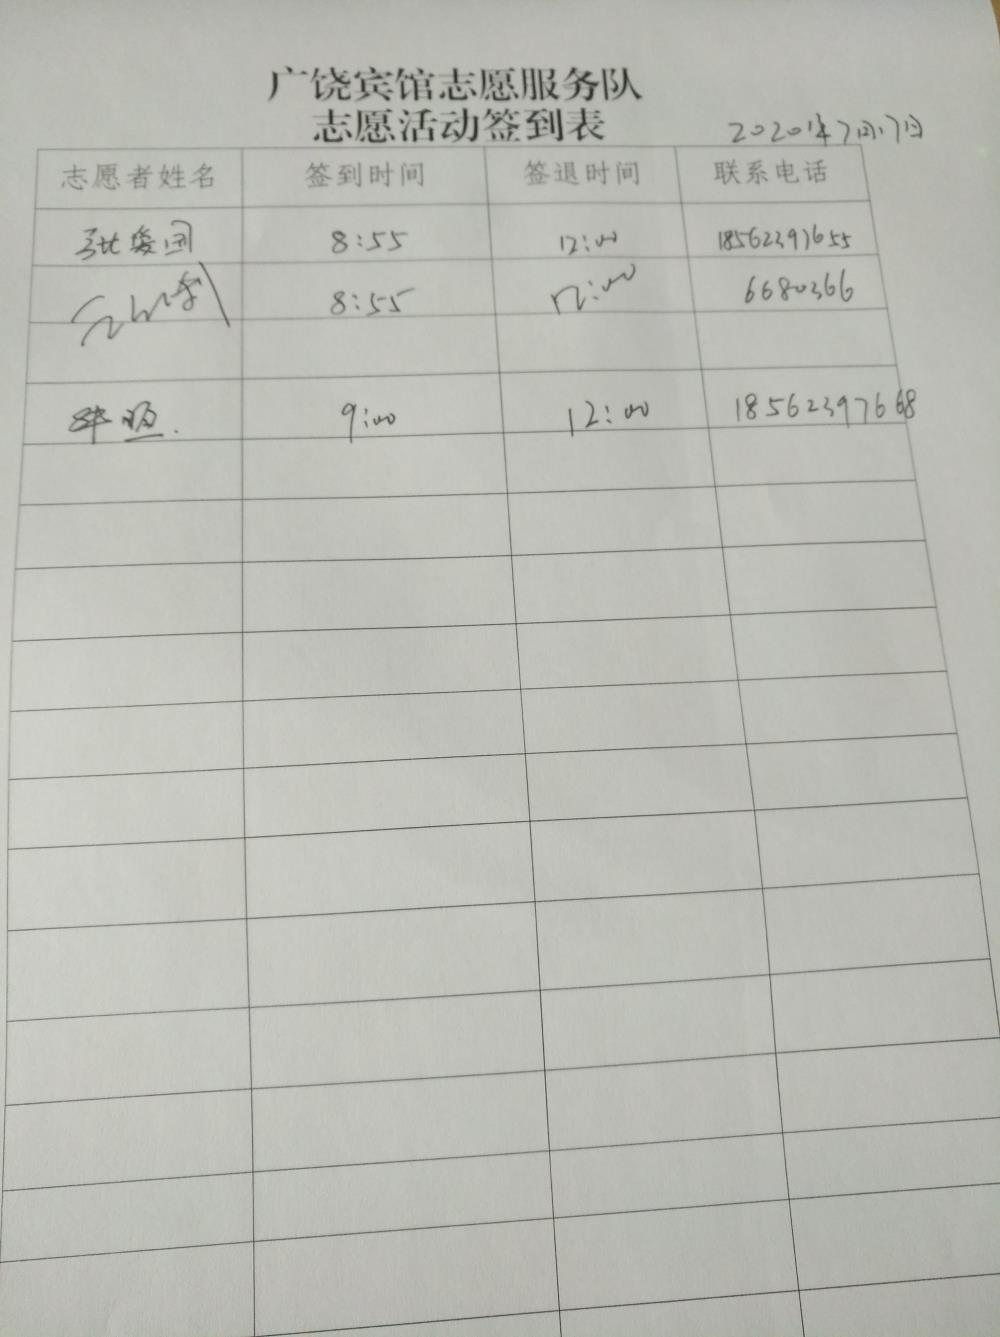 广饶宾馆志愿服务队
志愿活动签到表
2020年7月17日
志愿者姓名 签到时间 签退时间 联系电话
8:55 12:00 18562397655
8:55 12:00 6680366
9:00 12:00 18562397668